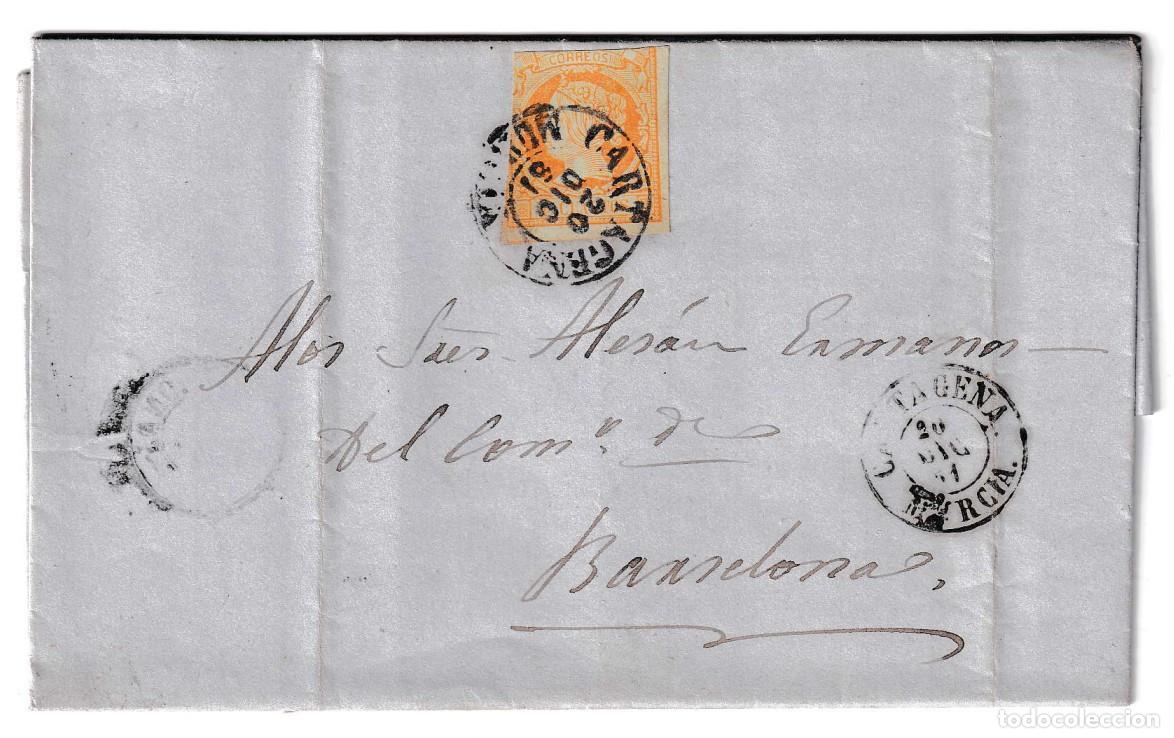 CORREOS
CARTAGENA MURCIA
20
DIC
61
Alos Sres Alesán Ermanos
Del Com.º de
Barselona,
CARTAGENA.
20
DIC
61
MURCIA.
todocoleccion